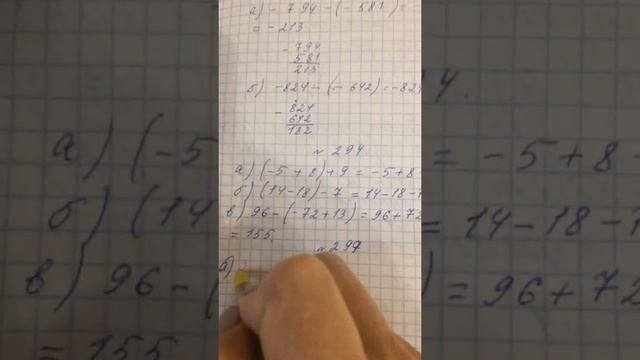 а) - 794 - (- 581) =
= - 213
- 794
581
213
б) -824 - (- 642) = -824
- 824
642
182
~ 294
а) (-5 + 8) + 9 = -5 + 8 -
б) (14 - 18) - 7 = 14 - 18 -
в) 96 - (- 72 + 13) = 96 + 72
= 155
~ 297
а)